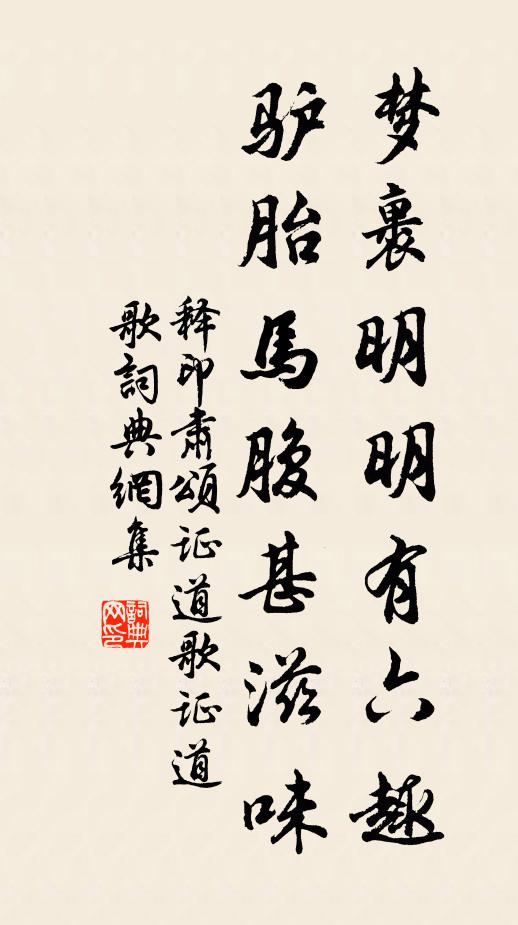 梦裹明明有六趣
驴胎馬腹甚滋味
释印肅頌证道歌证道
歌詞典網集
詞典网印